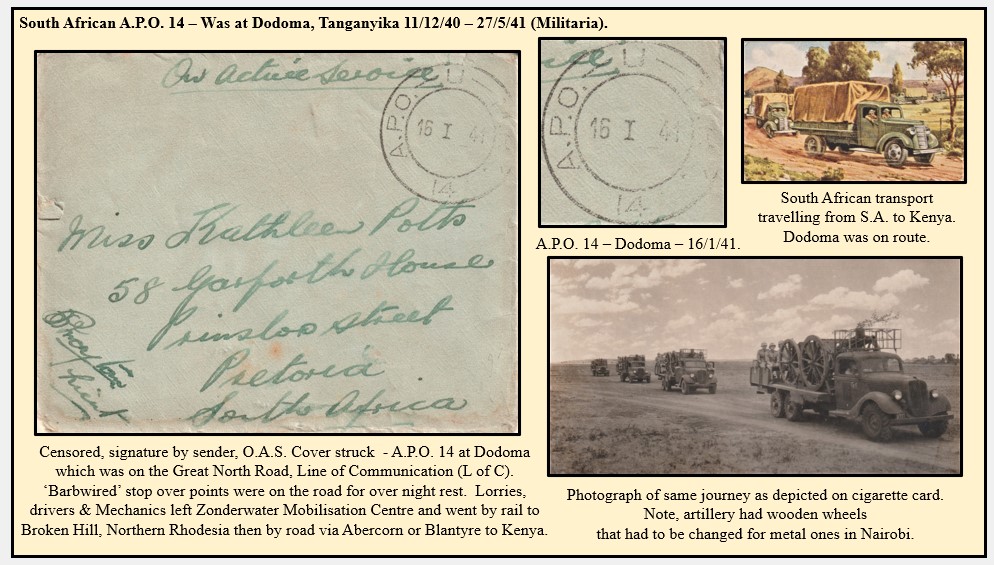 South African A.P.O. 14 – Was at Dodoma, Tanganyika 11/12/40 – 27/5/41 (Militaria).
On active service
A.P.O. U
16 I 41
14
Miss Kathleen Potts
58 Garforth House
Prinsloo street
Pretoria
South Africa
A.P.O. U
16 I 41
14
South African transport
travelling from S.A. to Kenya.
Dodoma was on route.
A.P.O. 14 – Dodoma – 16/1/41.
Censored, signature by sender, O.A.S. Cover struck - A.P.O. 14 at Dodoma
which was on the Great North Road, Line of Communication (L of C).
‘Barbwired’ stop over points were on the road for over night rest. Lorries,
drivers & Mechanics left Zonderwater Mobilisation Centre and went by rail to
Broken Hill, Northern Rhodesia then by road via Abercorn or Blantyre to Kenya.
Photograph of same journey as depicted on cigarette card.
Note, artillery had wooden wheels
that had to be changed for metal ones in Nairobi.